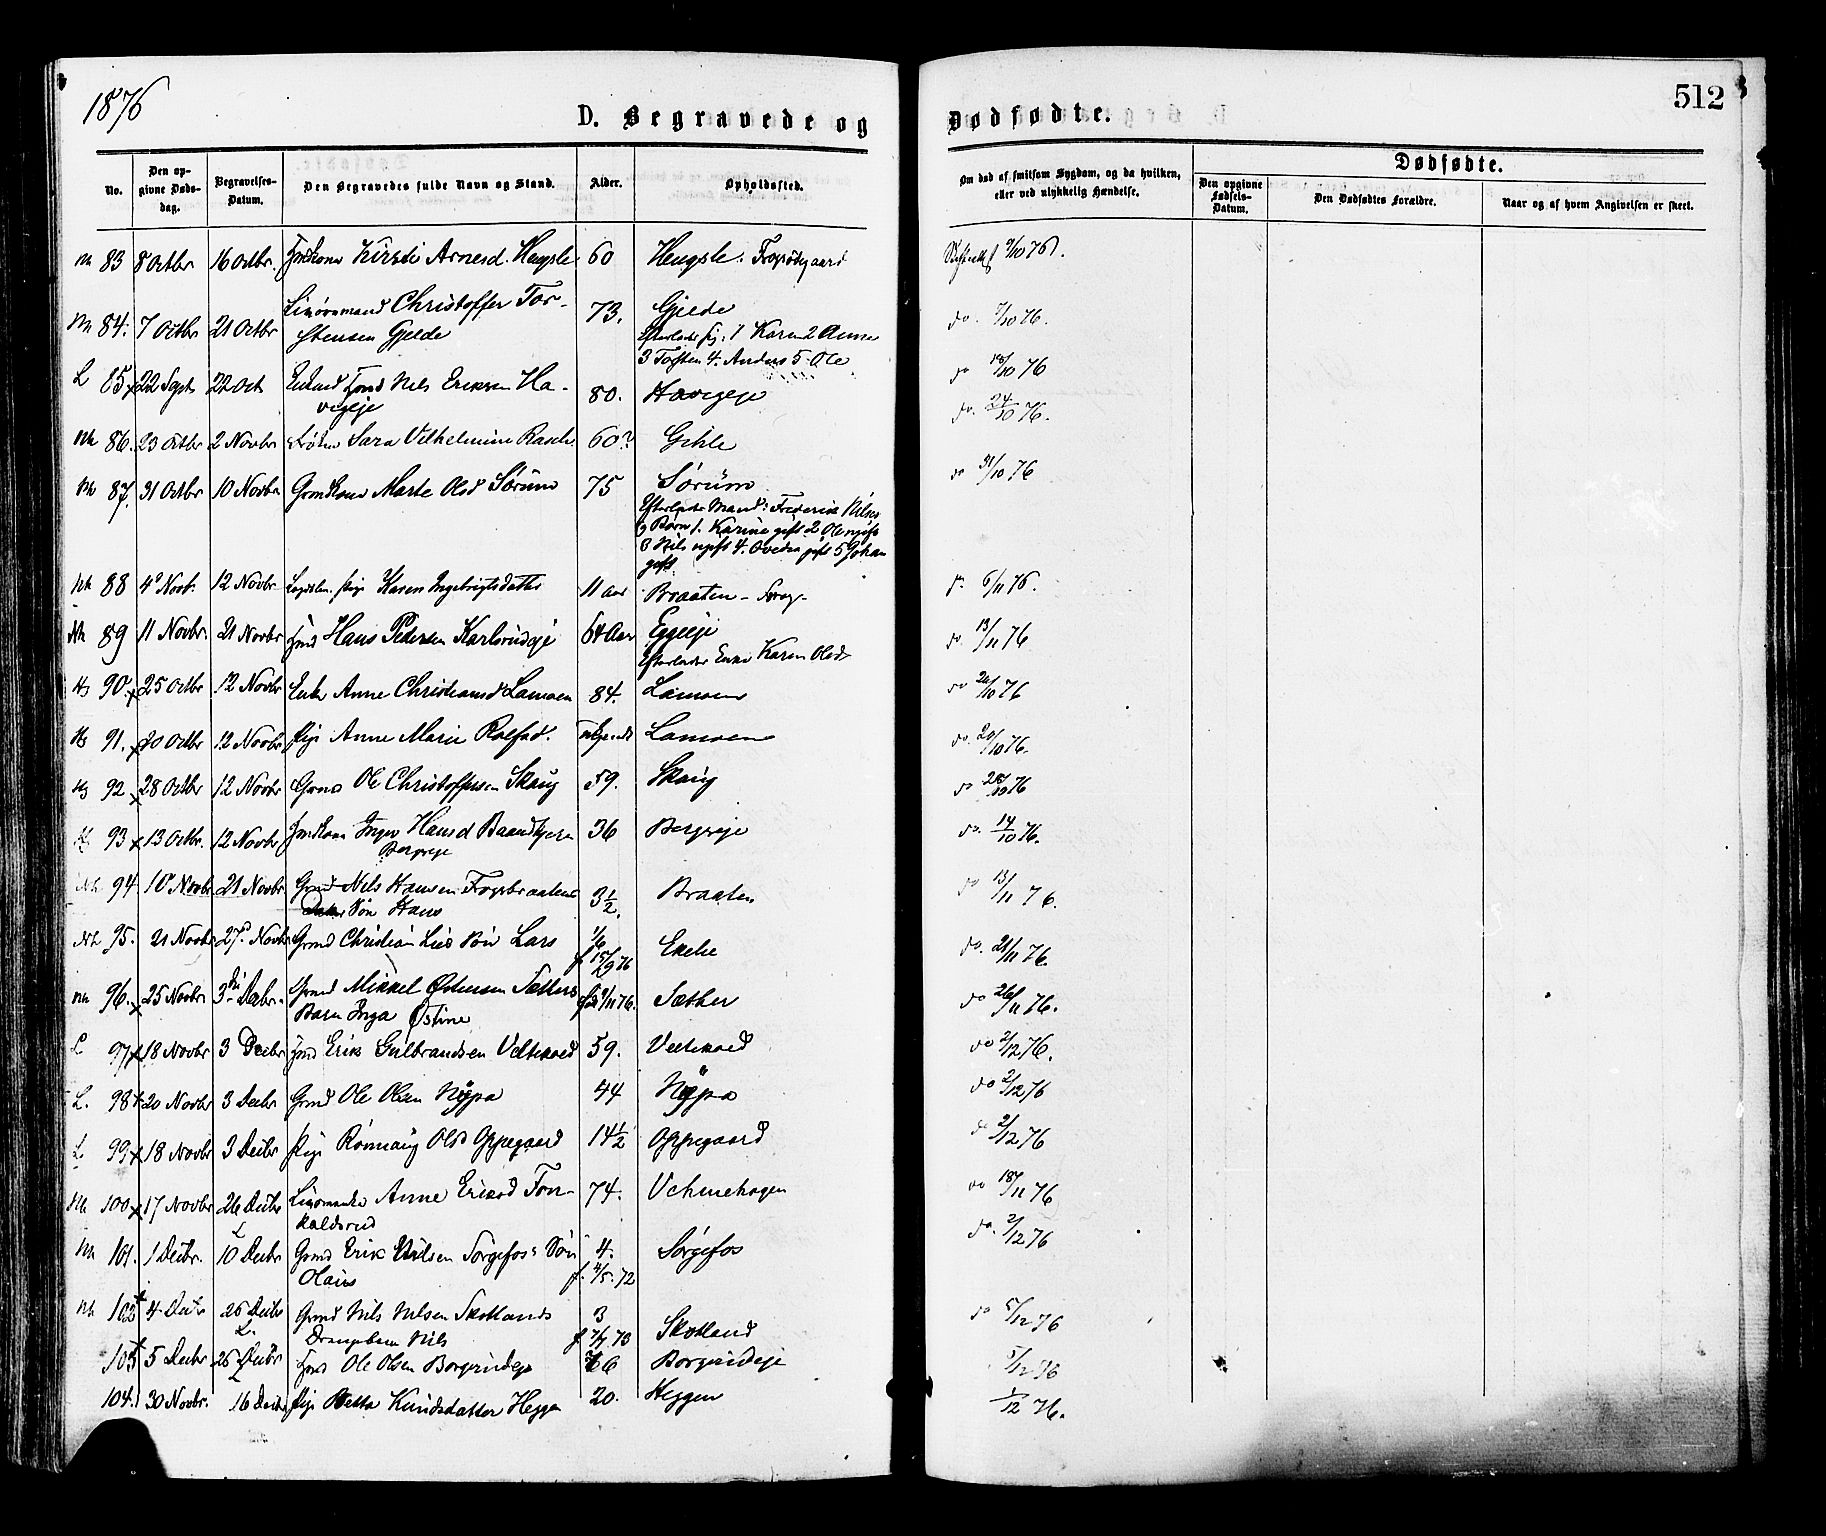 1876
D. Begravede og
Dødfødte.
512
No.
Den opgivne Dødsdag.
Begravelses-Datum.
Den Begravedes fulde Navn og Stand.
Alder.
Opholdssted.
Om død af smitsom Sygdom, og da hvilken, eller ved ulykkelig Hændelse.
Dødfødte.
Den opgivne Fødsels-Datum.
Den Dødfødtes Forældre.
Naar og af hvem Angivelsen er skeet.
Nh 83 8 Octbr 16 Octbr. Kirsti Arnesd. Hengsle 60 Hengsle 9/10 76.
Nh 84. 7 Octbr 21 Octbr Christoffer Tor- 73. Gjelde do. 9/10 76.
stensen Gjelde Efterlader sig: 1 Karen 2 Anne
3 Tosten 4. Anders 5. Ole
L 85 22 Sept 22 Oct Nils Eriksen Ha- 80. Havigeje do 76
vigeje
Nh 86. 23 Octbr 2 Novbr Frøken Sara Vilhelmine Rasch 60? Gihle do. 24/10 76.
Nh 87. 31 Octbr 10 Novbr Gmdkone Marte Olsd Sørum 75 Sørum do 31/10 76
Efterlader Mand: Frederik Nilsen
og Børn 1. Karine gift 2 Ole ugift
3 Nils ugift 4. gift 5 Johan
gift
Nh 88 4 Novb. 12 Novbr. Pige Karen Ingebrigtsdatter 11 aar Braaten 6/11 76.
Nh 89 11 Novbr. 21 Novbr Hans Pedersen Karlsrudeje 64 Aar Eggeeje do. 13/11 76
Efterlader Enke Karen Olsd
Hs 90. 25 Octbr 12 Novbr Enke Anne Christiansd Lamoen 84. Lamoen do 26/10 76
Hs 91. 20 Octbr 12 Novbr Pige Anne Marie Rolfsd. Lamoen do. 20/10 76.
Hs 92 28 Octbr 12 Novbr Gmd Ole Christophersen Skaug 59. Skaug do 76
93 13 Octbr. 12 Novbr Inger Hansd 36 Bergeje do. 14/10 76.
Bergeje
Nh 94 10 Novbr 21 Novbr Gmd Nils Hansen 3½. Braaten do 13/11 76.
Søn Hans
Nh 95. 21 Novbr 27 Novbr Gmd Christian Søn Lars 1/6 Ekelie do. 21/11 76.
f 15/9 76
Nh 96. 25 Novbr 3 Decbr. Gmd Mikkel Østensen Sæthers Sæther do 26/11 76.
Barn Inga Østine
L 97 18 Novbr 3 Decbr Erik Gulbrandsen 59. do 2/12 76.
L. 98 20 Novbr 3 Decbr Gmd Ole Olsen Nøjpa 44 Nøjpa do 2/12 76
L 99 18 Novbr 3 Decbr Pige Rønnaug Olsd Oppegaard 14½ Oppegaard 2/12 76
Nh 100 17 Novbr 26 Decbr Anne Eriksd Ton- 74. do 18/11 76
kaldsrud
Nh 101. 1 Decbr. 10 Decbr Gmd Erik Nilsen Sørgefos's Søn 4. Sørgefos do. 2/12 76
Olaus f. 4/5. 72
Nh 102 4 Decbr 26 Decbr Gmd Nils Nilsen Skotlands 3 Skotland do 5/12 76
Drengebarn Nils f 7/7 73
103 5 Decbr 26 Decbr Ole Olsen Borgerudeje 66 Borgerudeje 5/12 76
104. 30 Novbr. 16 Decbr Pige Knudsdatter Heggen 20. Heggen 1/12 76.